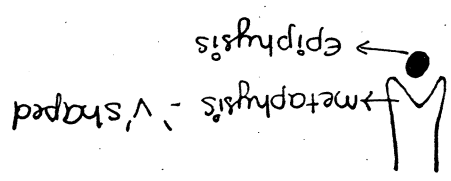 metaphysis - 'V' shaped
Epiphysis